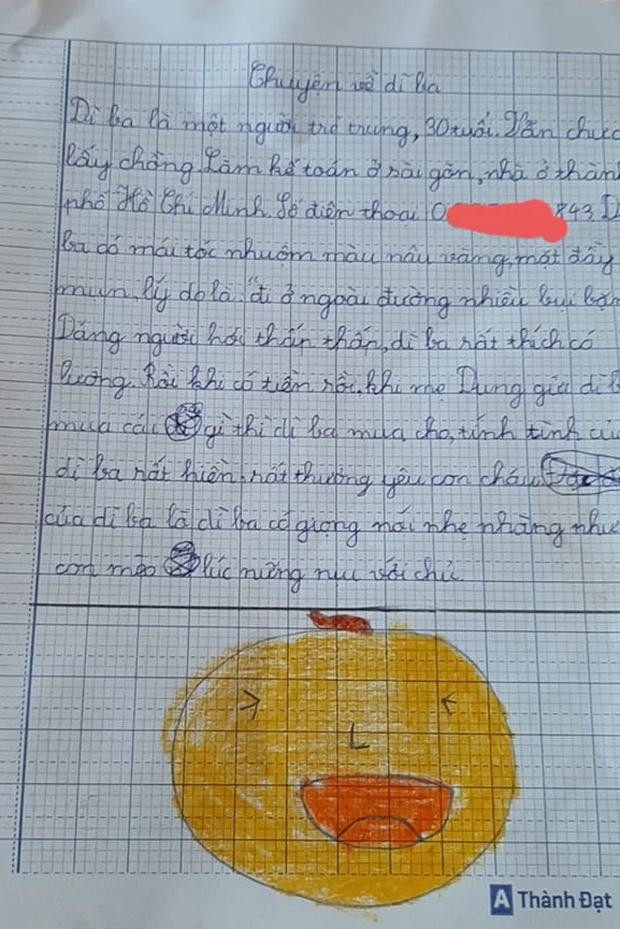 Chuyện về dì ba
Dì ba là một người trẻ trung, 30 tuổi. Vẫn chưa
lấy chồng. Làm kế toán ở sài gòn, nhà ở thành
phố Hồ Chí Minh. Số điện thoại 0 843. D
ba có mái tóc nhuộm màu nâu vàng, mặt đầy
mụn, lý do là: "đi ở ngoài đường nhiều bụi bặm
Dáng người hơi thấp thấp, dì ba rất thích có
lương. Rồi khi có tiền rồi, khi mẹ Dung giả dì b
mua cái gì thì dì ba mua cho, tính tình củ
dì ba rất hiền, rất thương yêu con cháu
của dì ba là dì ba có giọng nói nhẹ nhàng như
con mèo lúc nũng nịu với chủ.
A Thành Đạt